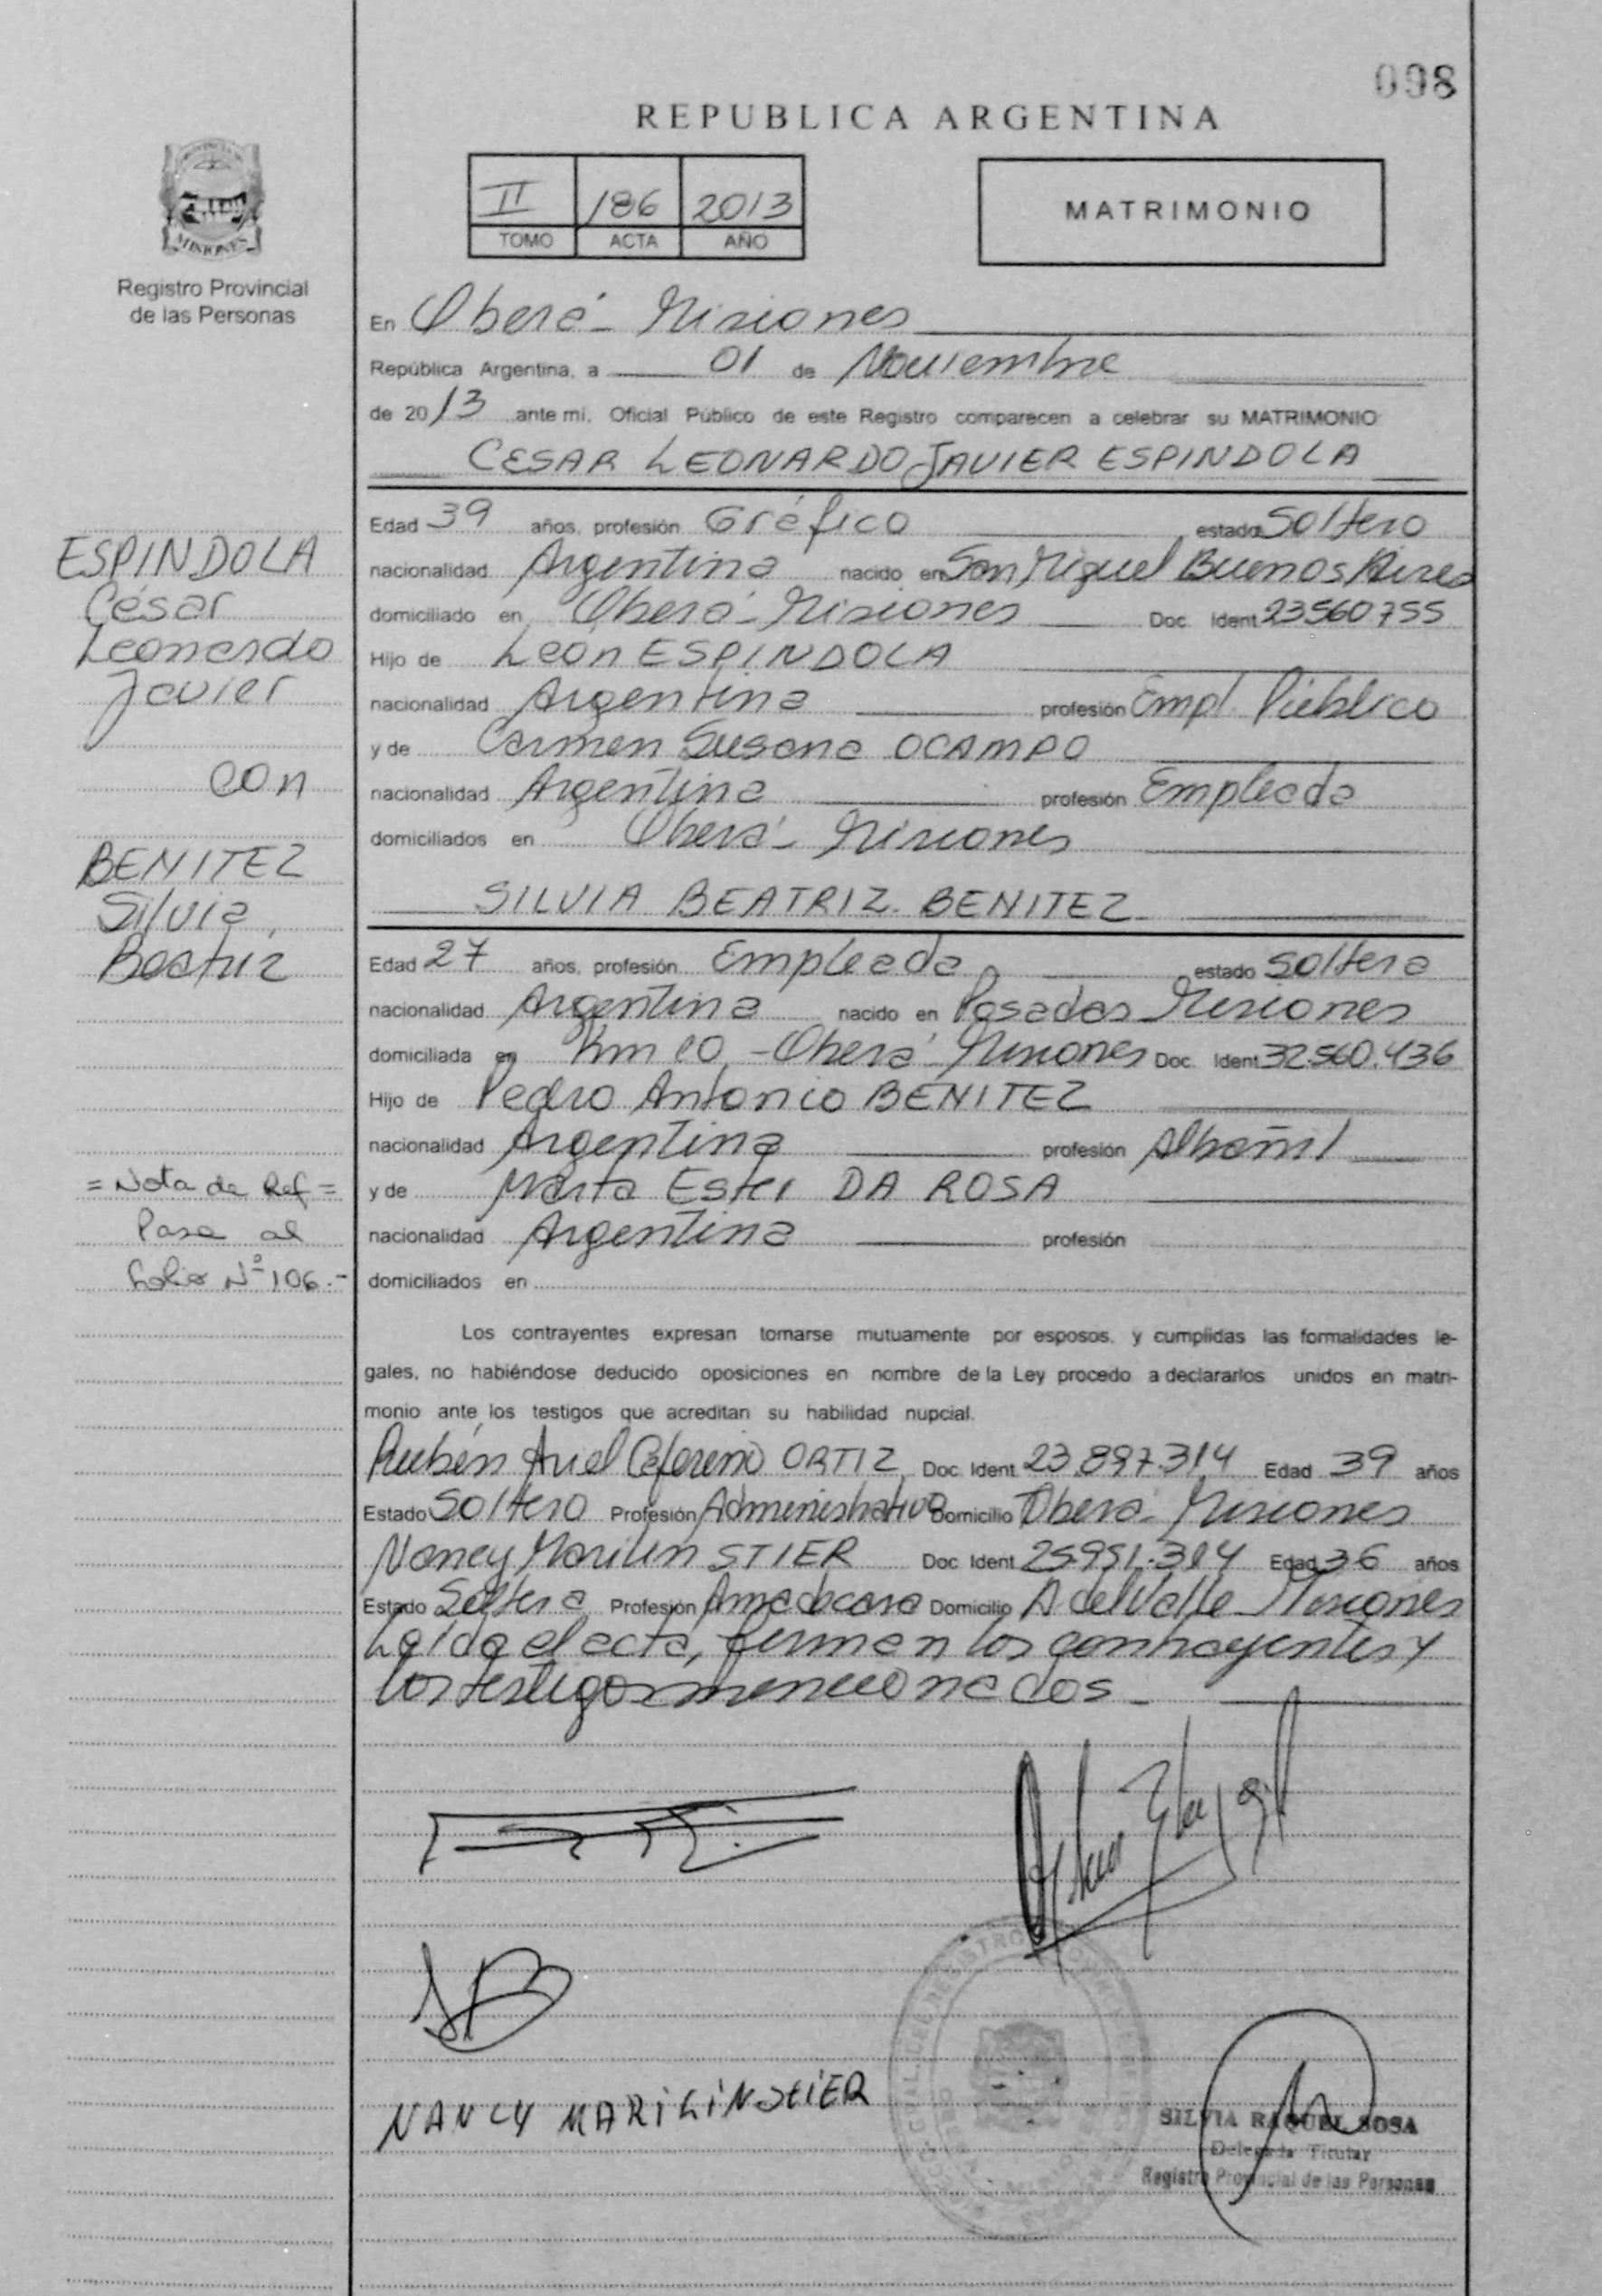 098
REPUBLICA ARGENTINA
II 186 2013
TOMO ACTA AÑO
MATRIMONIO
MISIONES
Registro Provincial
de las Personas
En Oberá - Misiones
República Argentina, a 01 de Noviembre
de 2013 ante mi, Oficial Público de este Registro comparecen a celebrar su MATRIMONIO:
CESAR LEONARDO JAVIER ESPINDOLA
Edad 39 años, profesión Gráfico estado Soltero
nacionalidad Argentina nacido en San Miguel Buenos Aires
domiciliado en Oberá - Misiones Doc. Ident 23.560.755
Hijo de León ESPINDOLA
nacionalidad Argentina profesión Empl. Público
y de Carmen Susana OCAMPO
nacionalidad Argentina profesión Empleada
domiciliados en Oberá - Misiones
SILVIA BEATRIZ BENITEZ
Edad 27 años, profesión Empleada estado soltera
nacionalidad Argentina nacido en Posadas Misiones
domiciliada en Km 10 - Oberá Misiones Doc. Ident 32.560.436
Hijo de Pedro Antonio BENITEZ
nacionalidad Argentina profesión Albañil
y de Marta Ester DA ROSA
nacionalidad Argentina profesión
domiciliados en
Los contrayentes expresan tomarse mutuamente por esposos, y cumplidas las formalidades le-
gales, no habiéndose deducido oposiciones en nombre de la Ley procedo a declararlos unidos en matri-
monio ante los testigos que acreditan su habilidad nupcial.
Rubén Ariel Ceferino ORTIZ Doc. Ident. 23.897.314 Edad 39 años
Estado Soltero Profesión Administrativo Domicilio Oberá - Misiones
Nancy Marilin STIER Doc. Ident 25.951.314 Edad 36 años
Estado Soltera Profesión Ama de casa Domicilio A del Valle - Misiones
Leída el acta, firman los contrayentes y
los testigos mencionados -
ESPINDOLA
César
Leonardo
Javier
con
BENITEZ
Silvia
Beatriz
= Nota de Ref =
Pasa al
folio Nº 106.-
NANCY MARILIN STIER
SILVIA RAQUEL SOSA
Delegada Titular
Registro Provincial de las Personas